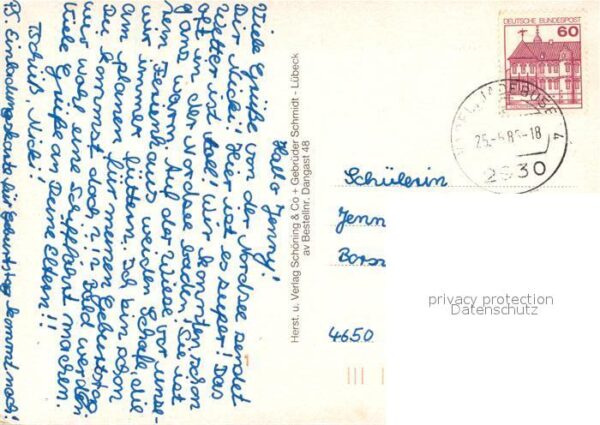 Hallo Jenny!
Viele Grüße von der Nordsee sendet
Dir Micki! Hier ist es super! Das
Wetter ist toll! Wir konnten schon
oft in der Nordsee baden, sie ist
ganz warm. Auf der Wiese vor unse-
rem Ferienhaus weiden Schafe, die
wir immer füttern. Ich bin schon
am planen für meinen Geburtstag.
Du kommst doch, n.? Bald werden
wir wohl eine Schiffahrt machen.
Viele Grüße an Deine Eltern!!
Tschüß, Micki!
P.S. Einladungskarte für Geburtstag kommt noch!
Herst. u. Verlag Schöning & Co + Gebrüder Schmidt - Lübeck
av Bestellnr. Dangast 48
DEUTSCHE BUNDESPOST
60
JADEBUSEN 4
-18
2930
Schülerin
Jenn
Bors
4650
privacy protection
Datenschutz